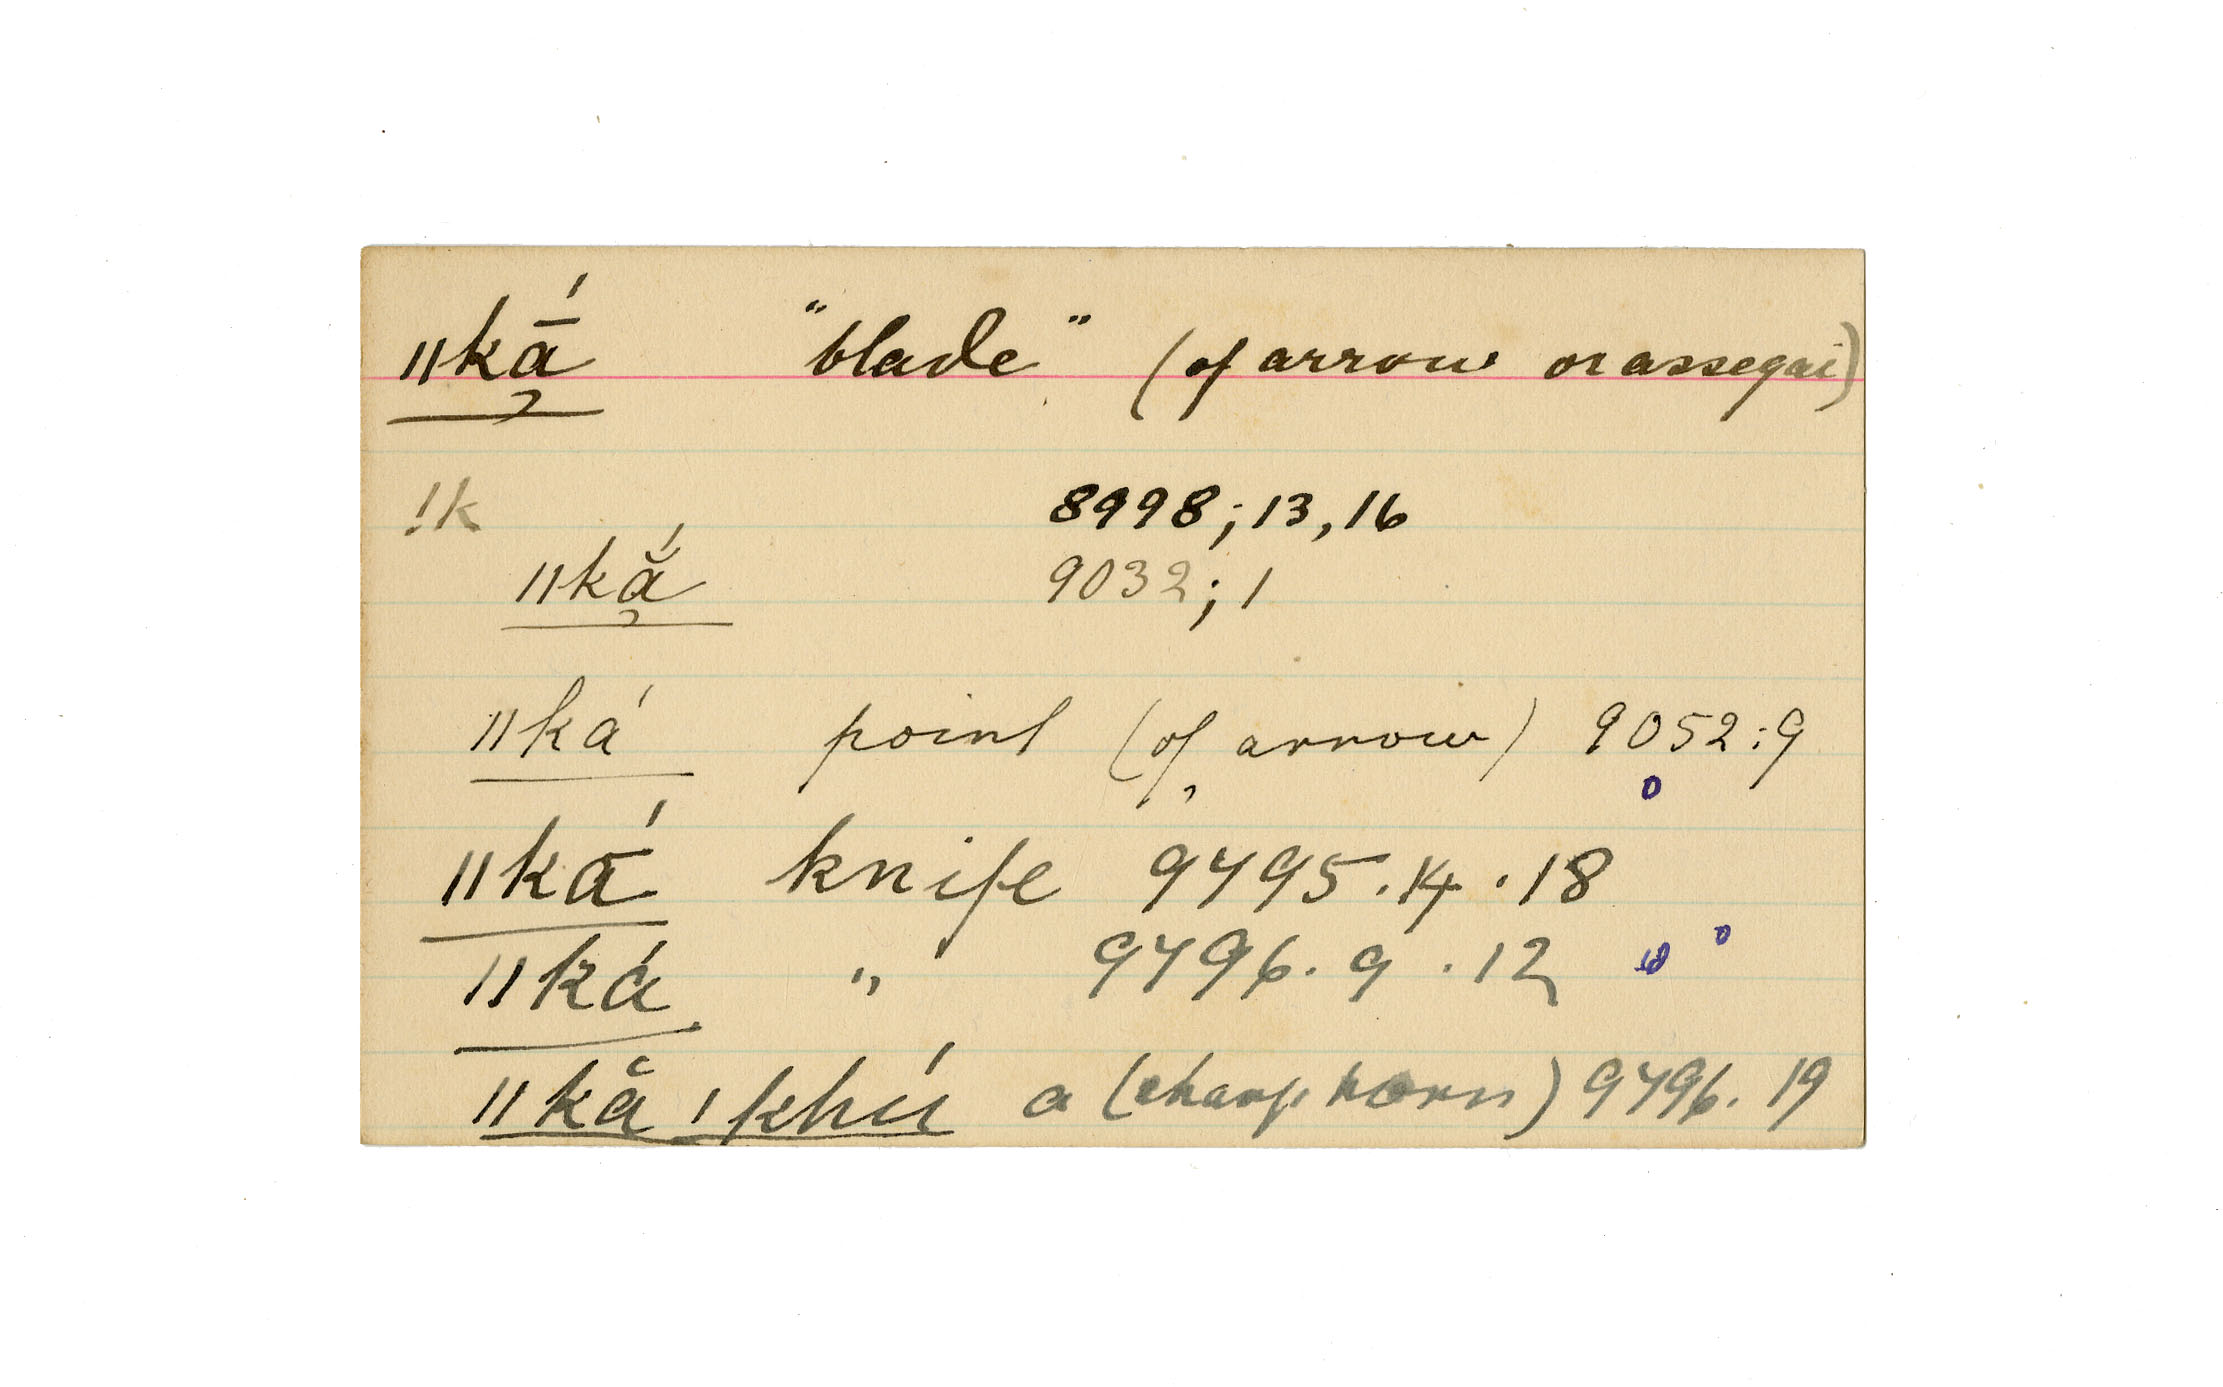 ǁkā̢́ "blade" (of arrow or assegai)
!k 8998; 13, 16
ǁkắ̢ 9032; 1
ǁká point (of arrow) 9052:9
ǁkā́ knife 9495.14.18
ǁká " 9496.9.12
ǁkă !khú a (sharp horn) 9496.19